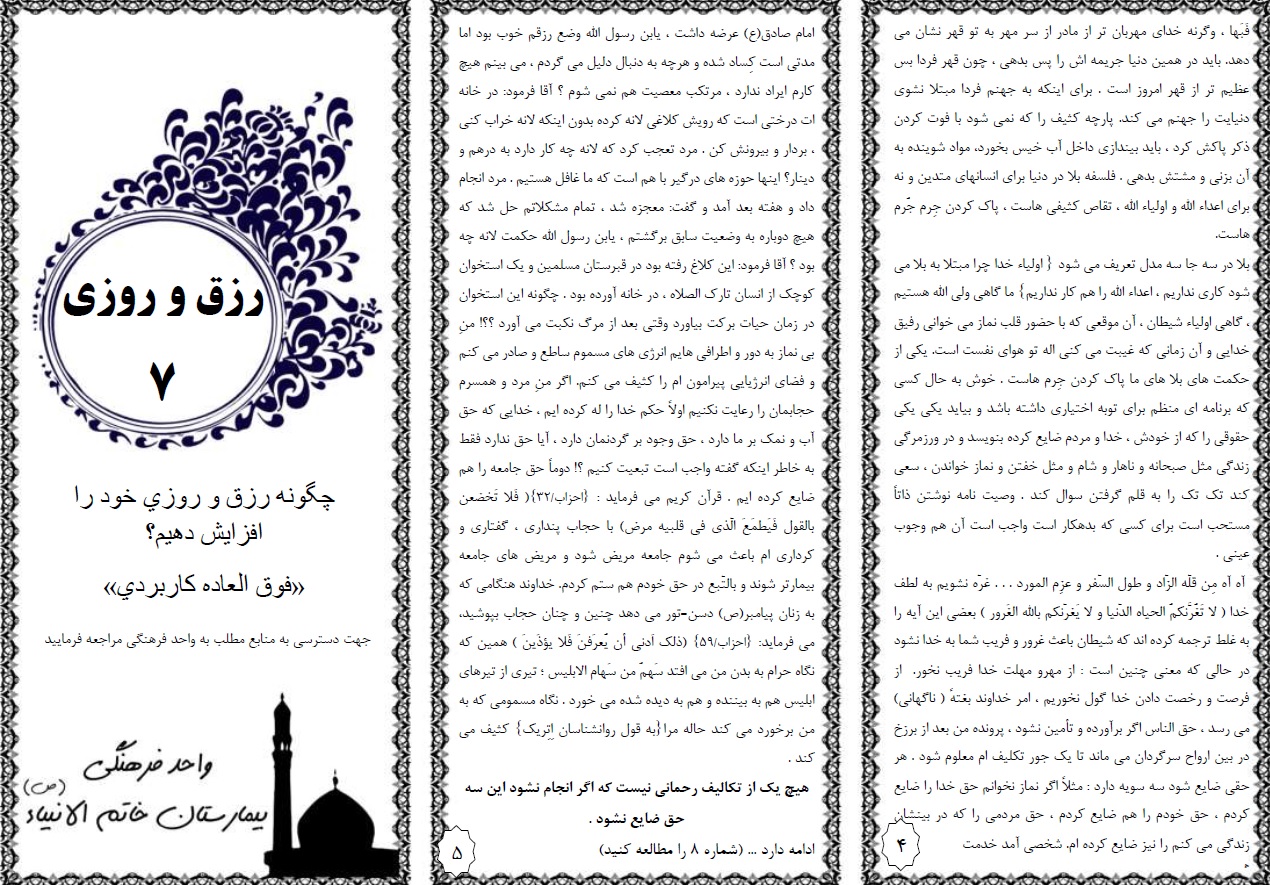 فَبَها ، وگرنه خدای مهربان تر از مادر از سر مهر به تو قهر نشان می
دهد. باید در همین دنیا جریمه اش را پس بدهی ، چون قهر فردا بس
عظیم تر از قهر امروز است . برای اینکه به جهنم فردا مبتلا نشوی
دنیایت را جهنم می کند. پارچه کثیف را که نمی شود با فوت کردن
ذکر پاکش کرد ، باید بیندازی داخل آب خیس بخورد، مواد شوینده به
آن بزنی و مشتش بدهی . فلسفه بلا در دنیا برای انسانهای متدین و نه
برای اعداء الله و اولیاء الله ، تقاص کثیفی هاست ، پاک کردن جِرم جّرم
هاست.
بلا در سه جا سه مدل تعریف می شود { اولیاء خدا چرا مبتلا به بلا می
شود کاری نداریم ، اعداء الله را هم کار نداریم} ما گاهی ولی الله هستیم
، گاهی اولیاء شیطان ، آن موقعی که با حضور قلب نماز می خوانی رفیق
خدایی و آن زمانی که غیبت می کنی اله تو هوای نفست است. یکی از
حکمت های بلا های ما پاک کردن جِرم هاست . خوش به حال کسی
که برنامه ای منظم برای توبه اختیاری داشته باشد و بیاید یکی یکی
حقوقی را که از خودش ، خدا و مردم ضایع کرده بنویسد و در ورزمرگی
زندگی مثل صبحانه و ناهار و شام و مثل خفتن و نماز خواندن ، سعی
کند تک تک را به قلم گرفتن سوال کند . وصیت نامه نوشتن ذاتاً
مستحب است برای کسی که بدهکار است واجب است آن هم وجوب
عینی .
آه آه مِن قلّه الزاد و طول السّفر و عزم المورد . . . غرّه نشویم به لطف
خدا ( لا تَغُرَّنکمّ الحیاه الدّنیا و لا یَغرّنکم بالله الغَرور ) بعضی این آیه را
به غلط ترجمه کرده اند که شیطان باعث غرور و فریب شما به خدا نشود
در حالی که معنی چنین است : از مهرو مهلت خدا فریب نخور. از
فرصت و رخصت دادن خدا گول نخوریم ، امر خداوند بغتهً ( ناگهانی)
می رسد ، حق الناس اگر برآورده و تأمین نشود ، پرونده من بعد از برزخ
در بین ارواح سرگردان می ماند تا یک جور تکلیف ام معلوم شود . هر
حقی ضایع شود سه سویه دارد : مثلاً اگر نماز نخوانم حق خدا را ضایع
کردم ، حق خودم را هم ضایع کردم ، حق مردمی را که در بینشان
زندگی می کنم را نیز ضایع کرده ام. شخصی آمد خدمت
۴
امام صادق(ع) عرضه داشت ، یابن رسول الله وضع رزقم خوب بود اما
مدتی است کِساد شده و هرچه به دنبال دلیل می گردم ، می بینم هیچ
کارم ایراد ندارد ، مرتکب معصیت هم نمی شوم ؟ آقا فرمود: در خانه
ات درختی است که رویش کلاغی لانه کرده بدون اینکه لانه خراب کنی
، بردار و بیرونش کن . مرد تعجب کرد که لانه چه کار دارد به درهم و
دینار؟ اینها حوزه های درگیر با هم است که ما غافل هستیم . مرد انجام
داد و هفته بعد آمد و گفت: معجزه شد ، تمام مشکلاتم حل شد که
هیچ دوباره به وضعیت سابق برگشتم ، یابن رسول الله حکمت لانه چه
بود ؟ آقا فرمود: این کلاغ رفته بود در قبرستان مسلمین و یک استخوان
کوچک از انسان تارک الصلاه ، در خانه آورده بود . چگونه این استخوان
در زمان حیات برکت بیاورد وقتی بعد از مرگ نکبت می آورد ؟؟! منِ
بی نماز به دور و اطرافی هایم انرژی های مسموم ساطع و صادر می کنم
و فضای انرژیایی پیرامون ام را کثیف می کنم. اگر منِ مرد و همسرم
حجابمان را رعایت نکنیم اولاً حکم خدا را له کرده ایم ، خدایی که حق
آب و نمک بر ما دارد ، حق وجود بر گردنمان دارد ، آیا حق ندارد فقط
به خاطر اینکه گفته واجب است تبعیت کنیم ؟! دوماً حق جامعه را هم
ضایع کرده ایم . قرآن کریم می فرماید : {احزاب/۳۲}( فَلا تَخضعن
بالقول فَیَطمَعَ الّذی فی قلبیه مرض) با حجاب پنداری ، گفتاری و
کرداری ام باعث می شوم جامعه مریض شود و مریض های جامعه
بیمارتر شوند و بالتّبع در حق خودم هم ستم کردم. خداوند هنگامی که
به زنان پیامبر(ص) دسن-تور می دهد چنین و چنان حجاب بپوشید،
می فرماید: {احزاب/۵۹} (ذلک اَدنی أن یّعرَفنَ فَلا یوُذَینَ ) همین که
نگاه حرام به بدن من می افتد سَهمٌ من سَهام الابلیس ؛ تیری از تیرهای
ابلیس هم به بیننده و هم به دیده شده می خورد . نگاه مسمومی که به
من برخورد می کند حاله مرا{به قول روانشناسان اِتِریک} کثیف می
کند .
هیچ یک از تکالیف رحمانی نیست که اگر انجام نشود این سه
حق ضایع نشود .
ادامه دارد ... (شماره ۸ را مطالعه کنید)
۵
رزق و روزی
۷
چگونه رزق و روزي خود را
افزایش دهیم؟
«فوق العاده کاربردي»
جهت دسترسی به منابع مطلب به واحد فرهنگی مراجعه فرمایید
واحد فرهنگی
بیمارستان خاتم الانبیاء (ص)